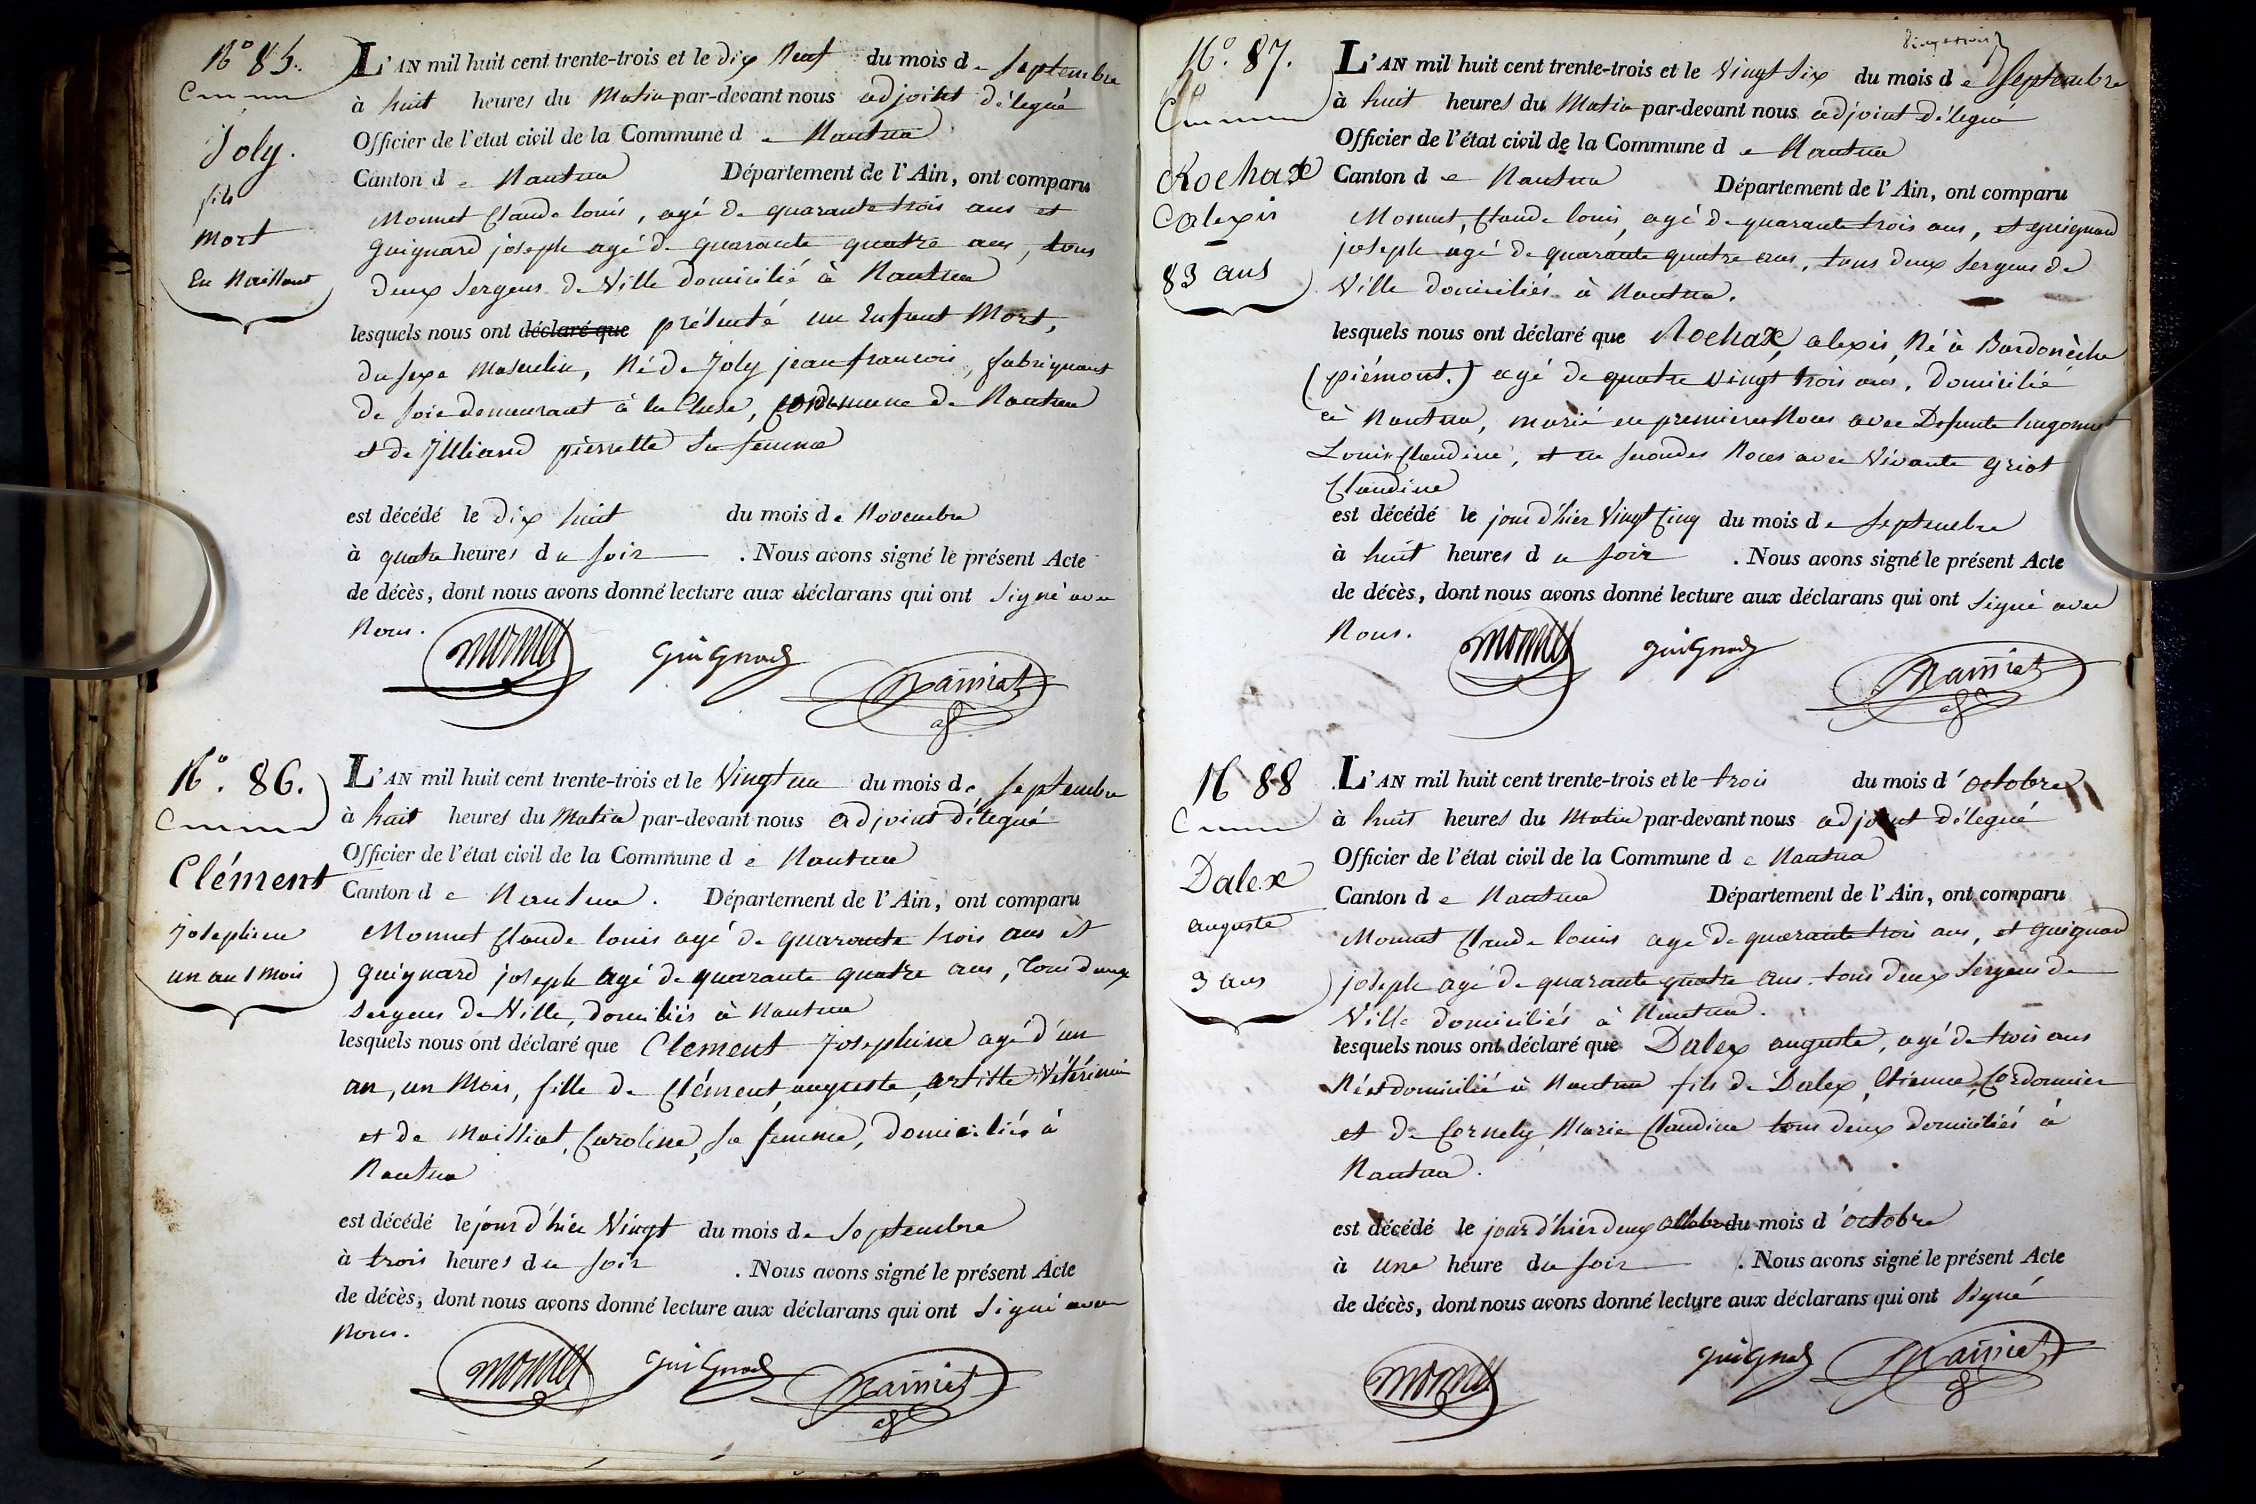 N° 85.
Joly.
fils
mort
En Naissant
L'AN mil huit cent trente-trois et le dix Neuf du mois de Septembre
à huit heures du Matin par-devant nous adjoint délégué
Officier de l'état civil de la Commune de Nantua
Canton de Nantua Département de l'Ain, ont comparu
Monnet Claude louis, agé de quarante trois ans et
guignard joseph agé de quarante quatre ans, tous
deux Sergens de Ville domicilié à Nantua
lesquels nous ont déclaré que présenté un Enfant Mort,
du sexe Masculin, Né de Joly jean francois, fabriquant
de soie demeurant à la Cluse, Commune de Nantua
et de Jilliard pierrette sa femme
est décédé le dix huit du mois de Novembre
à quatre heures du soir . Nous avons signé le présent Acte
de décès, dont nous avons donné lecture aux déclarans qui ont Signé avec
Nous.
monnet guignard
N°. 86.
Clément
Josephine
un an 1 Mois
L'AN mil huit cent trente-trois et le Vingt un du mois de Septembre
à huit heures du Matin par-devant nous adjoint délegué
Officier de l'état civil de la Commune de Nantua
Canton de Nantua. Département de l'Ain, ont comparu
Monnet Claude louis agé de quarante trois ans et
guignard joseph agé de quarante quatre ans, tous deux
Sergens de Ville, domiliés à Nantua
lesquels nous ont déclaré que Clement Josephine agé d'un
an, un Mois, fille de Clément, auguste, artiste Vétérinaire
et de Maissiat, Caroline, sa femme, domiciliés à
Nantua
est décédé le jour d'hier Vingt du mois de Septembre
à trois heures du soir . Nous avons signé le présent Acte
de décès, dont nous avons donné lecture aux déclarans qui ont Signé avec
Nous.
monnet guignard
N°. 87.
Rochax
alexis
83 ans
L'AN mil huit cent trente-trois et le Vingt Six du mois de Septembre
à huit heures du Matin par-devant nous adjoint délégué
Officier de l'état civil de la Commune de Nantua
Canton de Nantua Département de l'Ain, ont comparu
Monnet, Claude louis, agé de quarante trois ans, et guignard
joseph agé de quarante quatre ans, tous deux Sergens de
Ville domiciliés à Nantua.
lesquels nous ont déclaré que Rochax, alexis, Né à Bardonèche
(piémont.) agé de quatre Vingt trois ans, Domicilié
à Nantua, marié en premieres Noces avec Defunte
Louise Claudine, et en secondes Noces avec Vivante griot
Claudine
est décédé le jour d'hier Vingt Cinq du mois de Septembre
à huit heures du soir . Nous avons signé le présent Acte
de décès, dont nous avons donné lecture aux déclarans qui ont Signé avec
Nous.
monnet guignard
N 88
Dalex
auguste
3 ans
L'AN mil huit cent trente-trois et le trois du mois d'octobre
à huit heures du Matin par-devant nous adjoint délegué
Officier de l'état civil de la Commune de Nantua
Canton de Nantua Département de l'Ain, ont comparu
Monnet Claude louis agé de quarante trois ans, et guignard
joseph agé de quarante quatre ans tous deux Sergens de
Ville domiciliés à Nantua.
lesquels nous ont déclaré que Dalex auguste, agé de trois ans
Né et domicilié à Nantua fils de Dalex, Etienne, Cordonnier
et de Cornely, Marie Claudine tous deux domiciliés à
Nantua.
est décédé le jour d'hier deux octobre du mois d'octobre
à une heure du soir . Nous avons signé le présent Acte
de décès, dont nous avons donné lecture aux déclarans qui ont Signé
monnet guignard